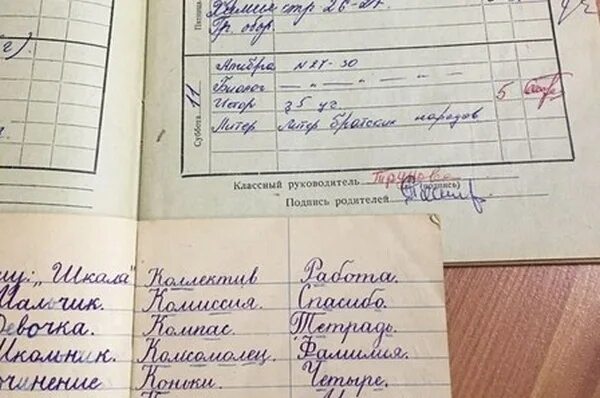 Пятница
Химия стр 26-27
Гр. обор.
Суббота 11
Алгебра N 27-30
Биолог — „ — „ — „ — 5
Истор з 5 уч.
Литер Литер братских народов
Классный руководитель Трунова
(подпись)
Подпись родителей
„Школа" Коллектив Работа.
Мальчик. Комиссия. Спасибо.
Девочка. Компас. Тетрадь.
Школьник. Комсомолец. Фамилия.
Сочинение Коньки. Четыре.